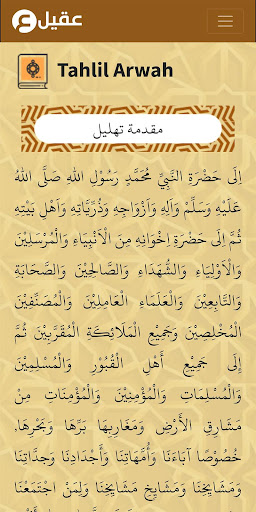 عقيل
Tahlil Arwah
مقدمة تهليل
إِلَى حَضْرَةِ النَّبِيِّ مُحَمَّدٍ رَسُوْلِ اللهِ صَلَّى اللهُ
عَلَيْهِ وَسَلَّمْ وَآلِهِ وَأَزْوَاجِهِ وَذُرِّيَّاتِهِ وَأَهْلِ بَيْتِهِ
ثُمَّ إِلَى حَضْرَةِ إِخْوَانِهِ مِنَ الْأَنْبِيَاءِ وَالْمُرْسَلِيْنَ
وَالْأَوْلِيَاءِ وَالشُّهَدَاءِ وَالصَّالِحِيْنَ وَالصَّحَابَةِ
وَالتَّابِعِيْنَ وَالْعُلَمَاءِ الْعَامِلِيْنَ وَالْمُصَنِّفِيْنَ
الْمُخْلِصِيْنَ وَجَمِيْعِ الْمَلَائِكَةِ الْمُقَرَّبِيْنَ ثُمَّ
إِلَى جَمِيْعِ أَهْلِ الْقُبُوْرِ وَالْمُسْلِمِيْنَ
وَالْمُسْلِمَاتِ وَالْمُؤْمِنِيْنَ وَالْمُؤْمِنَاتِ مِنْ
مَشَارِقِ الْأَرْضِ وَمَغَارِبِهَا بَرِّهَا وَبَحْرِهَا.
خُصُوْصًا آبَاءَنَا وَأُمَّهَاتِنَا وَأَجْدَادِنَا وَجَدَّاتِنَا
وَمَشَايِخَنَا وَمَشَايِخِ مَشَايِخِنَا وَلِمَنِ اجْتَمَعْنَا